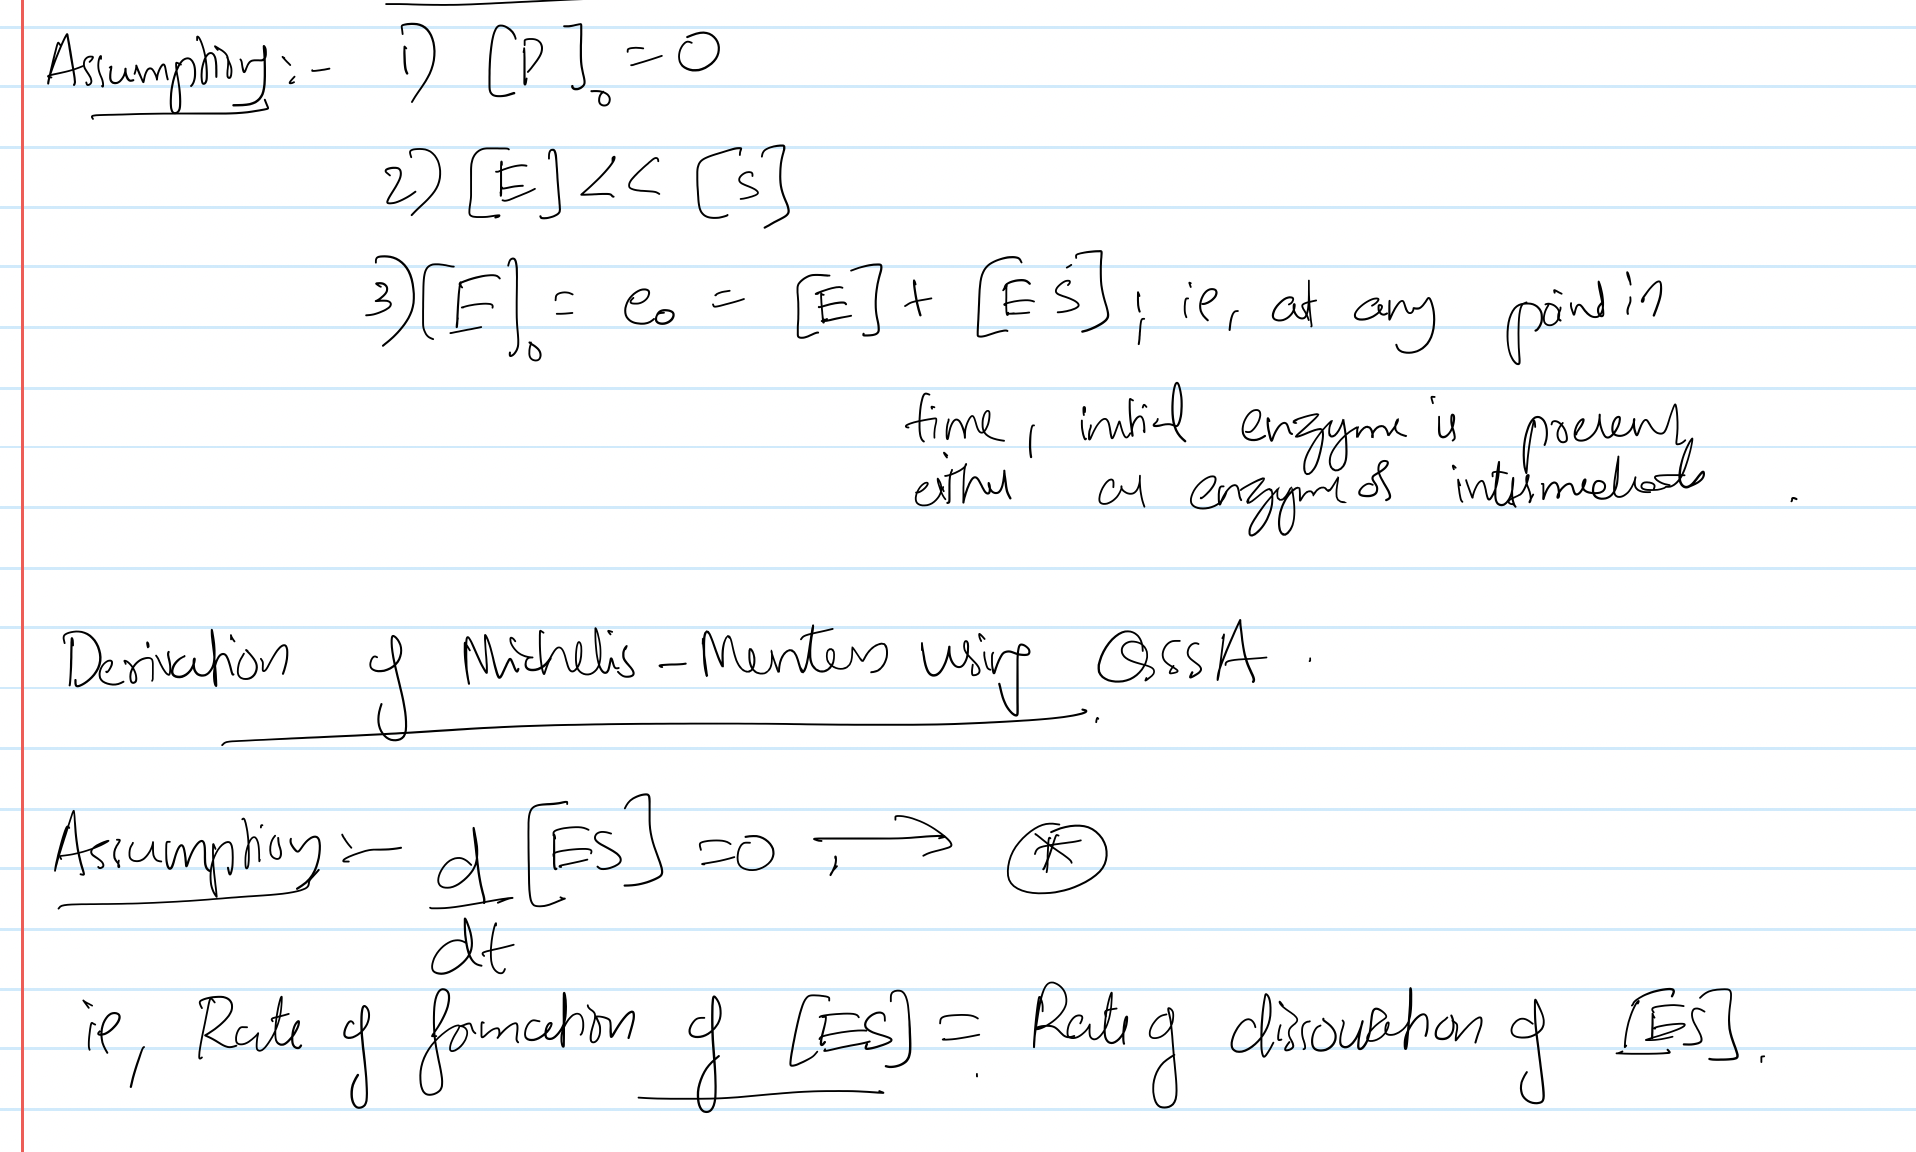 Assumption:- 1) [P]₀ = 0
2) [E] << [S]
3) [E]₀ = e₀ = [E] + [ES]; ie, at any point in
time, initial enzyme is present
either as enzyme or intermediate .
Derivation of Michelis-Menten using QSSA .
Assumption:- d/dt [ES] = 0 ; → *
ie, Rate of formation of [ES] = Rate of dissociation of [ES].